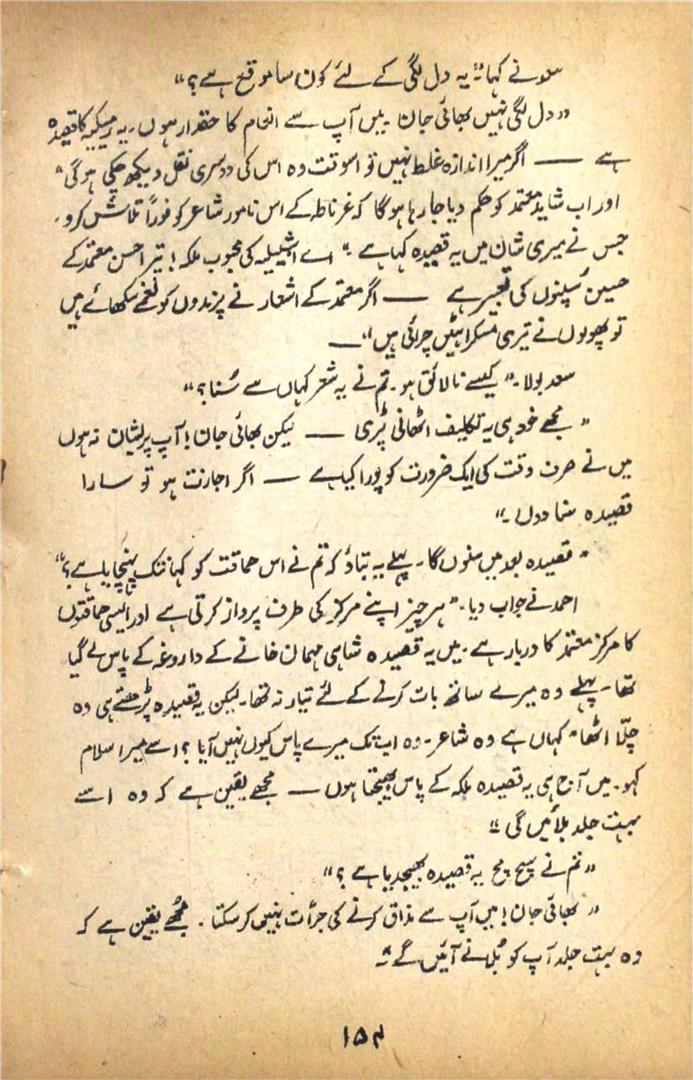 سعد نے کہا: "یہ دل لگی کے لئے کون سا موقع ہے؟"
"دل لگی نہیں بھائی جان۔ میں آپ سے انعام کا حقدار ہوں۔ یہ رمیکیہ کا قصیدہ
ہے — اگر میرا اندازہ غلط نہیں تو اسوقت وہ اس کی دوسری نقل دیکھ چکی ہوگی"
اور اب شاید معتمد کو حکم دیا جا رہا ہوگا کہ غرناطہ کے اس نامور شاعر کو فوراً تلاش کرو۔
جس نے میری شان میں یہ قصیدہ کہا ہے۔" اے اشبیلیہ کی محبوب ملکہ! تیرا حسن معتمد کے
حسین سپنوں کی تعبیر ہے — اگر معتمد کے اشعار نے پرندوں کو نغمے سکھائے ہیں
تو پھولوں نے تیری مسکراہٹیں چرائی ہیں"—
سعد بولا۔" کیسے نالائق ہو۔ تم نے یہ شعر کہاں سے سُنا؟"
"مجھے خود ہی یہ تکلیف اٹھانی پڑی — لیکن بھائی جان! آپ پریشان نہ ہوں
میں نے صرف وقت کی ایک ضرورت کو پورا کیا ہے — اگر اجازت ہو تو سارا
قصیدہ سنا دوں۔"
"قصیدہ بعد میں سنوں گا۔ پہلے یہ بتاؤ کہ تم نے اس حماقت کو کہانتک پہنچایا ہے؟"
احمد نے جواب دیا۔" ہر چیز اپنے مرکز کی طرف پرواز کرتی ہے اور ایسی حماقتوں
کا مرکز معتمد کا دربار ہے۔ میں یہ قصیدہ شاہی مہمان خانے کے داروغہ کے پاس لے گیا
تھا۔ پہلے وہ میرے ساتھ بات کرنے کے لئے تیار نہ تھا۔ لیکن یہ قصیدہ پڑھتے ہی وہ
چلّا اٹھا" کہاں ہے وہ شاعر۔ وہ ابتک میرے پاس کیوں نہیں آیا؟ اسے میرا سلام
کہو۔ میں آج ہی یہ قصیدہ ملکہ کے پاس بھیجتا ہوں — مجھے یقین ہے کہ وہ اسے
بہت جلد بلائیں گی"
"تم نے سچ مچ یہ قصیدہ بھیجدیا ہے؟"
"بھائی جان! میں آپ سے مذاق کرنے کی جرأت نہیں کر سکتا۔ مجھے یقین ہے کہ
وہ بہت جلد آپ کو بُلانے آئیں گے"۔
۱۵۴